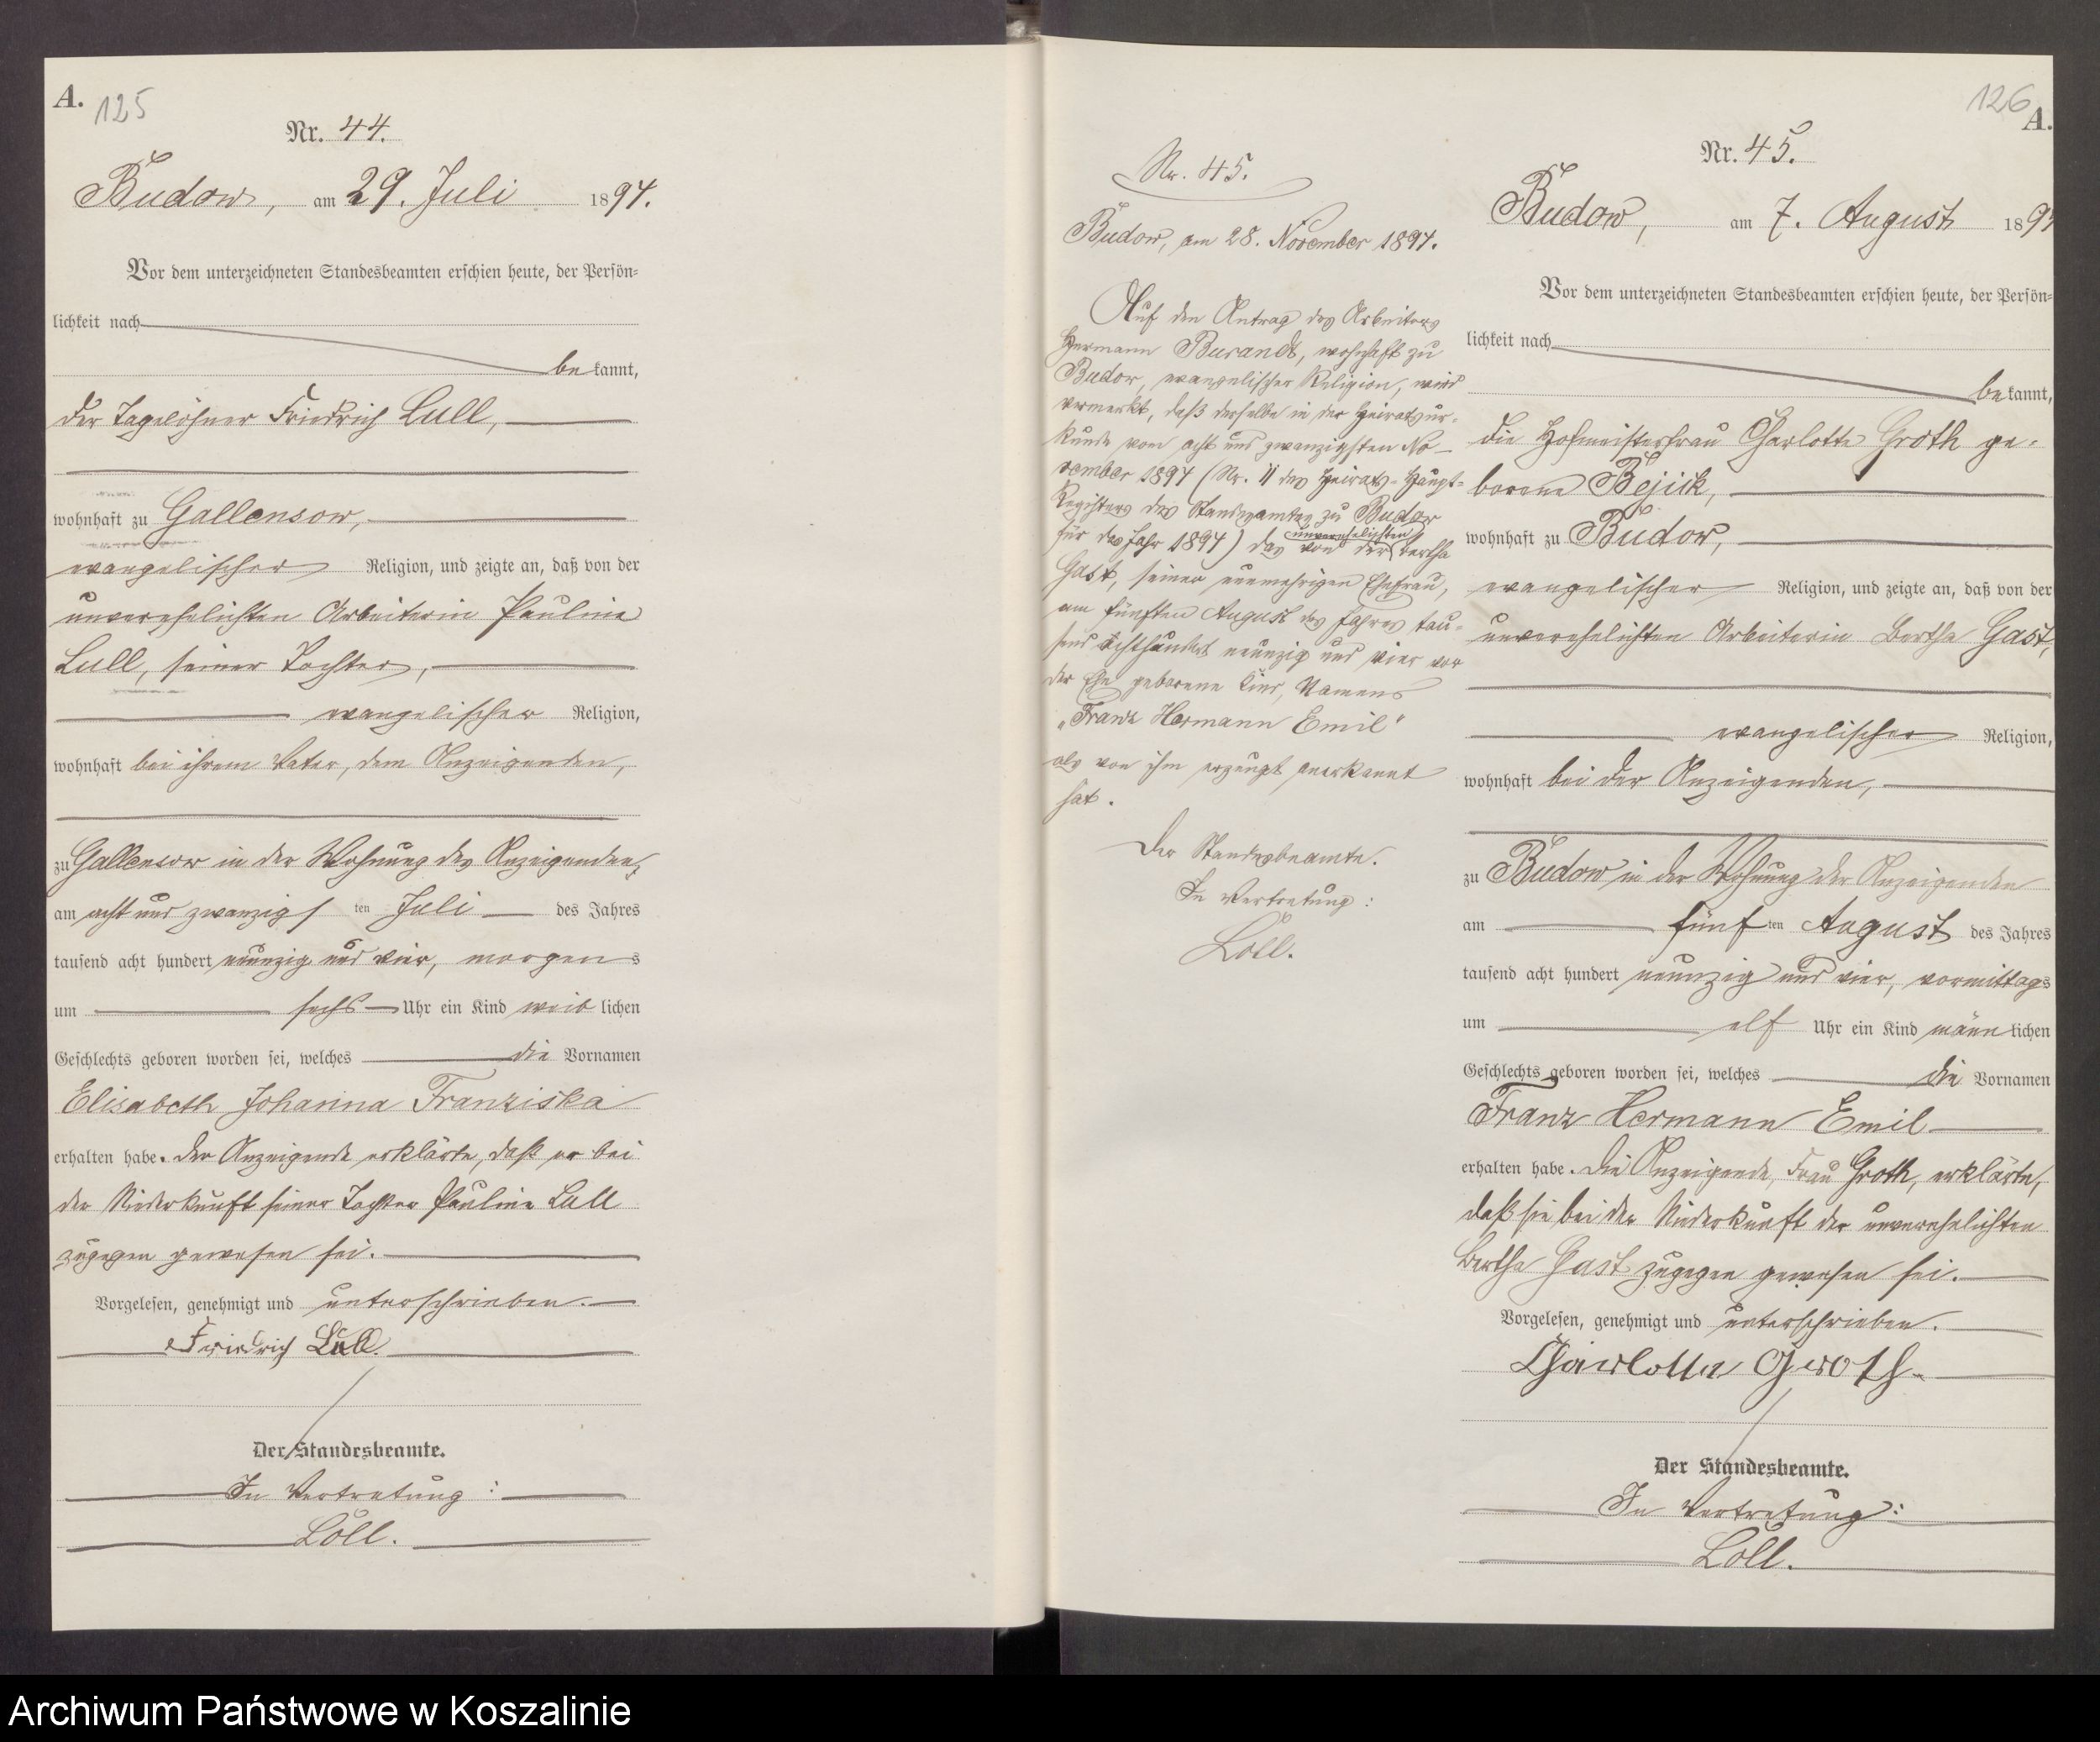 A.
125
Nr. 44.
Budow, am 29. Juli 1894.
Vor dem unterzeichneten Standesbeamten erschien heute, der Persön-
lichkeit nach
be kannt,
der Tagelöhner Friedrich Lull,
wohnhaft zu Gallensow,
evangelischer Religion, und zeigte an, daß von der
unverehelichten Arbeiterin Pauline
Lull, seiner Tochter,
evangelischer Religion,
wohnhaft bei ihrem Vater, dem Anzeigenden,
zu Gallensow in der Wohnung des Anzeigenden,
am acht und zwanzigs ten Juli des Jahres
tausend acht hundert neunzig und vier, morgens
um sechs Uhr ein Kind weib lichen
Geschlechts geboren worden sei, welches die Vornamen
Elisabeth Johanna Franziska
erhalten habe. Der Anzeigende erklärte, daß er bei
der Niederkunft seiner Tochter Pauline Lull
zugegen gewesen sei.
Vorgelesen, genehmigt und unterschrieben.
Friedrich Lull.
Der Standesbeamte.
In Vertretung:
Löll.
Nr. 45.
Budow, am 28. November 1894.
Auf den Antrag des Arbeiters
Hermann Burandt, wohnhaft zu
Budow, evangelischer Religion, wird
vermerkt, daß derselbe in der Heiratsur-
kunde vom acht und zwanzigsten No-
vember 1894 (Nr. 11 des Heirats-Haupt-
Registers des Standesamtes zu Budow
für das Jahr 1894) das von der unverehelichten Bertha
Gast, seiner nunmehrigen Ehefrau,
am fünften August des Jahres tau-
send achthundert neunzig und vier vor
der Ehe geborene Kind, Namens
„Franz Hermann Emil"
als von ihm erzeugt anerkannt
hat.
Der Standesbeamte.
In Vertretung:
Löll.
126
A.
Nr. 45.
Budow, am 7. August 189
Vor dem unterzeichneten Standesbeamten erschien heute, der Persön-
lichkeit nach
be kannt,
die Hofmeisterfrau Charlotte Groth ge-
borene Bejick,
wohnhaft zu Budow,
evangelischer Religion, und zeigte an, daß von der
unverehelichten Arbeiterin Bertha Gast,
evangelischer Religion,
wohnhaft bei der Anzeigenden,
zu Budow in der Wohnung der Anzeigenden
am fünf ten August des Jahres
tausend acht hundert neunzig und vier, vormittags
um elf Uhr ein Kind männ lichen
Geschlechts geboren worden sei, welches die Vornamen
Franz Hermann Emil
erhalten habe. Die Anzeigende, Frau Groth, erklärte,
daß sie bei der Niederkunft der unverehelichten
Bertha Gast zugegen gewesen sei.
Vorgelesen, genehmigt und unterschrieben.
Charlotte Groth.
Der Standesbeamte.
In Vertretung:
Löll.
Archiwum Państwowe w Koszalinie